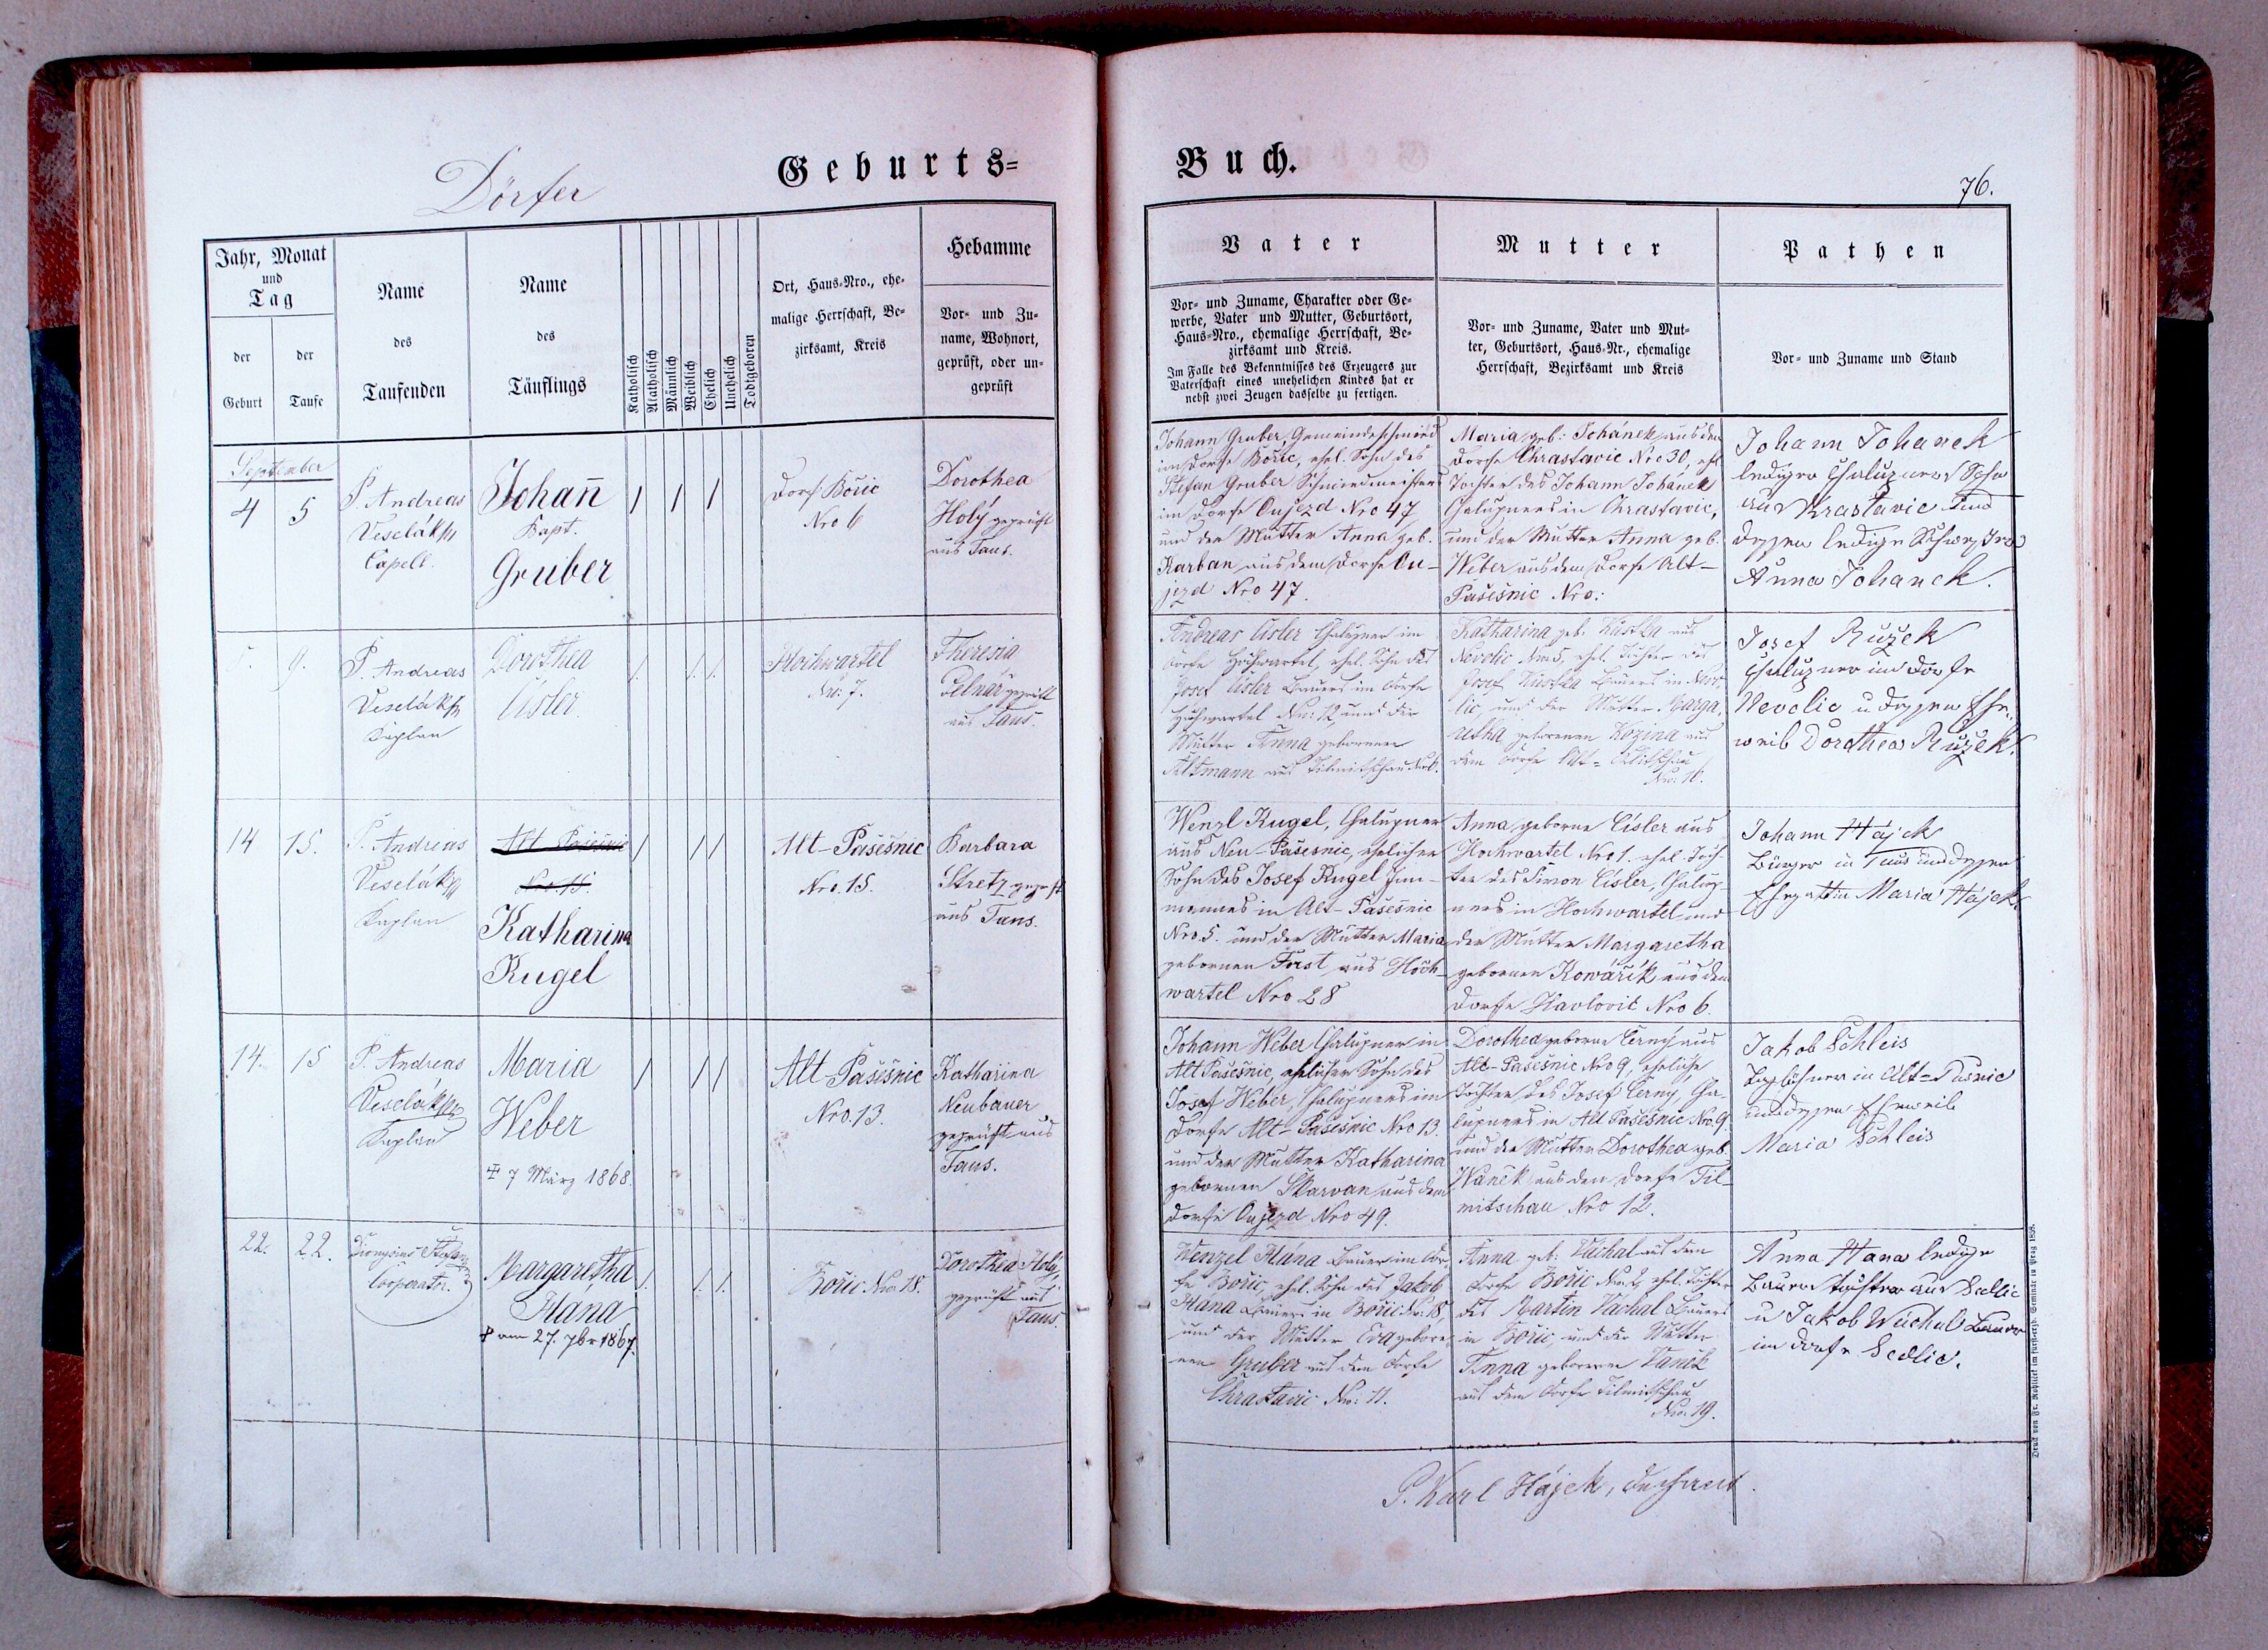 Dörfer
Geburts=
Buch.
76.
Jahr, Monat
und
Tag
der
Geburt
der
Taufe
Name
des
Taufenden
Name
des
Täuflings
Katholisch
Akatholisch
Männlich
Weiblich
Ehelich
Unehelich
Todtgeboren
Ort, Haus=Nro., ehe=
malige Herrschaft, Be=
zirksamt, Kreis
Hebamme
Vor= und Zu=
name, Wohnort,
geprüft, oder un=
geprüft
Vater
Vor= und Zuname, Charakter oder Ge=
werbe, Vater und Mutter, Geburtsort,
Haus=Nro., ehemalige Herrschaft, Be=
zirksamt und Kreis.
Im Falle des Bekenntnisses des Erzeugers zur
Vaterschaft eines unehelichen Kindes hat er
nebst zwei Zeugen dasselbe zu fertigen.
Mutter
Vor= und Zuname, Vater und Mut=
ter, Geburtsort, Haus=Nr., ehemalige
Herrschaft, Bezirksamt und Kreis
Pathen
Vor= und Zuname und Stand
September
4 5
P. Andreas
Veselák
Capell.
Johañ
Bapt.
Gruber
/ / /
Dorf: Bořic
Nro 6
Dorothea
Holý geprüft
aus Taus.
Johann Gruber, Gemeindeschmied
im Dorfe Bořic, ehel. Sohn des
Stefan Gruber Schmiedmeisters
im Dorfe Oujezd Nro 47
und der Mutter Anna geb.
Karban aus dem Dorfe Ou-
jezd Nro 47.
Maria geb: Johánek aus dem
Dorfe Chrastavic Nro 30, ehl.
Tochter des Johann Johánek
Chalupners in Chrastavic,
und der Mutter Anna geb.
Weber aus dem Dorfe Alt-
Pašešnic Nro:
Johann Johanek
lediger Chalupners Sohn
aus Krastavic und
dessen ledige Schwester
Anna Johanek.
9.
P. Andreas
Veselák
Kaplan
Dorothea
Cisler
/. /. /.
Hochwartel
Nro: 7.
Theresia
geprüft
aus Taus.
Andreas Cisler Chalupner im
Dorfe Hochwartel, ehel. Sohn des
Josef Cisler Bauers im Dorfe
Hochwartel Nro: 12 und der
Mutter Anna geborenen
Altmann aus Tilmitschau Nro 6.
Katharina geb.
Nevolic Nro 5, ehel. Tochter des
Josef Bauers in Nevo-
lic, und der Mutter Marga-
retha geborenen Kozina aus
dem Dorfe Alt=
Nro: 16.
Josef Ružek
Chalupner im Dorfe
Nevolic u dessen Ehe-
weib Dorothea Ružek.
14 15.
P. Andreas
Veselák
Kaplan
Alt Pašešnic
Nro. 15.
Katharina
Kugel
/ / /
Alt-Pašešnic
Nro. 15.
Barbara
Stretz geprüft
aus Taus.
Wenzl Kugel, Chalupner
aus Neu-Pašešnic, ehelicher
Sohn des Josef Kugel
in Alt-Pašešnic
Nro. 5. und der Mutter Maria
gebornen Forst, aus Hoch-
wartel Nro 28
Anna geborne Cisler aus
Hochwartel Nro 1. ehel. Toch-
ter des Simon Cisler, Chalup-
ners in Hochwartel und
der Mutter Margaretha
gebornen Kowařik aus dem
Dorfe Havlovic Nro 6.
Johann Hájek
Bürger in Taus und dessen
Ehegattin Maria Hájek.
14. 15
P. Andreas
Veselák
Kaplan
Maria
Weber
7 März 1868.
/ / /
Alt-Pašešnic
Nro. 13.
Katharina
Neubauer
geprüft aus
Taus.
Johann Weber Chalupner in
Alt Pašešnic, ehelicher Sohn des
Josef Weber, Chalupners im
Dorfe Alt-Pašešnic Nro 13.
und der Mutter Katharina
gebornen Skarvan aus dem
Dorfe Oujezd Nro 49.
Dorothea geborne Černý aus
Alt-Pašešnic Nro 9, eheliche
Tochter des Josef Černy, Cha-
lupners in Alt Pašešnic Nro. 9
und der Mutter Dorothea geb.
Waněk aus dem Dorfe Til-
mitschau Nro 12.
Jakob Schleis
Taglöhner in Alt=Pasnic
und dessen Eheweib
Maria Schleis
22. 22.
Dionysius
Cooperator.
Margaretha
Hána
am 27. 7br 1867.
/. /. /.
Bořic Nro: 18.
Dorothea Holý
geprüft aus
Taus.
Wenzel Hána Bauer im Dor-
fe Bořic, ehel. Sohn des Jakob
Hána Bauers in Bořic Nro: 18,
und der Mutter Eva gebore-
nen Gruber aus dem Dorfe
Chrastavic Nro: 11.
Anna geb: Váchal aus dem
Dorfe Bořic Nro: 2, ehel. Tochter
des Martin Váchal Bauers
in Bořic, und der Mutter
Anna geborenen Vaněk
aus dem Dorfe Tilmitschau
Nro: 19.
Anna Hana ledige
Bauers tochter aus Sedlic
u Jakob Wachal Bauer
im Dorfe Sedlic.
P. Karl Hájek, Dechant.
Druck von Fr. Rohliček im fürsterzb. Seminär in Prag 1858.